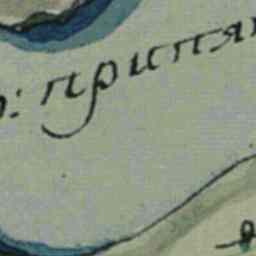 р: припя